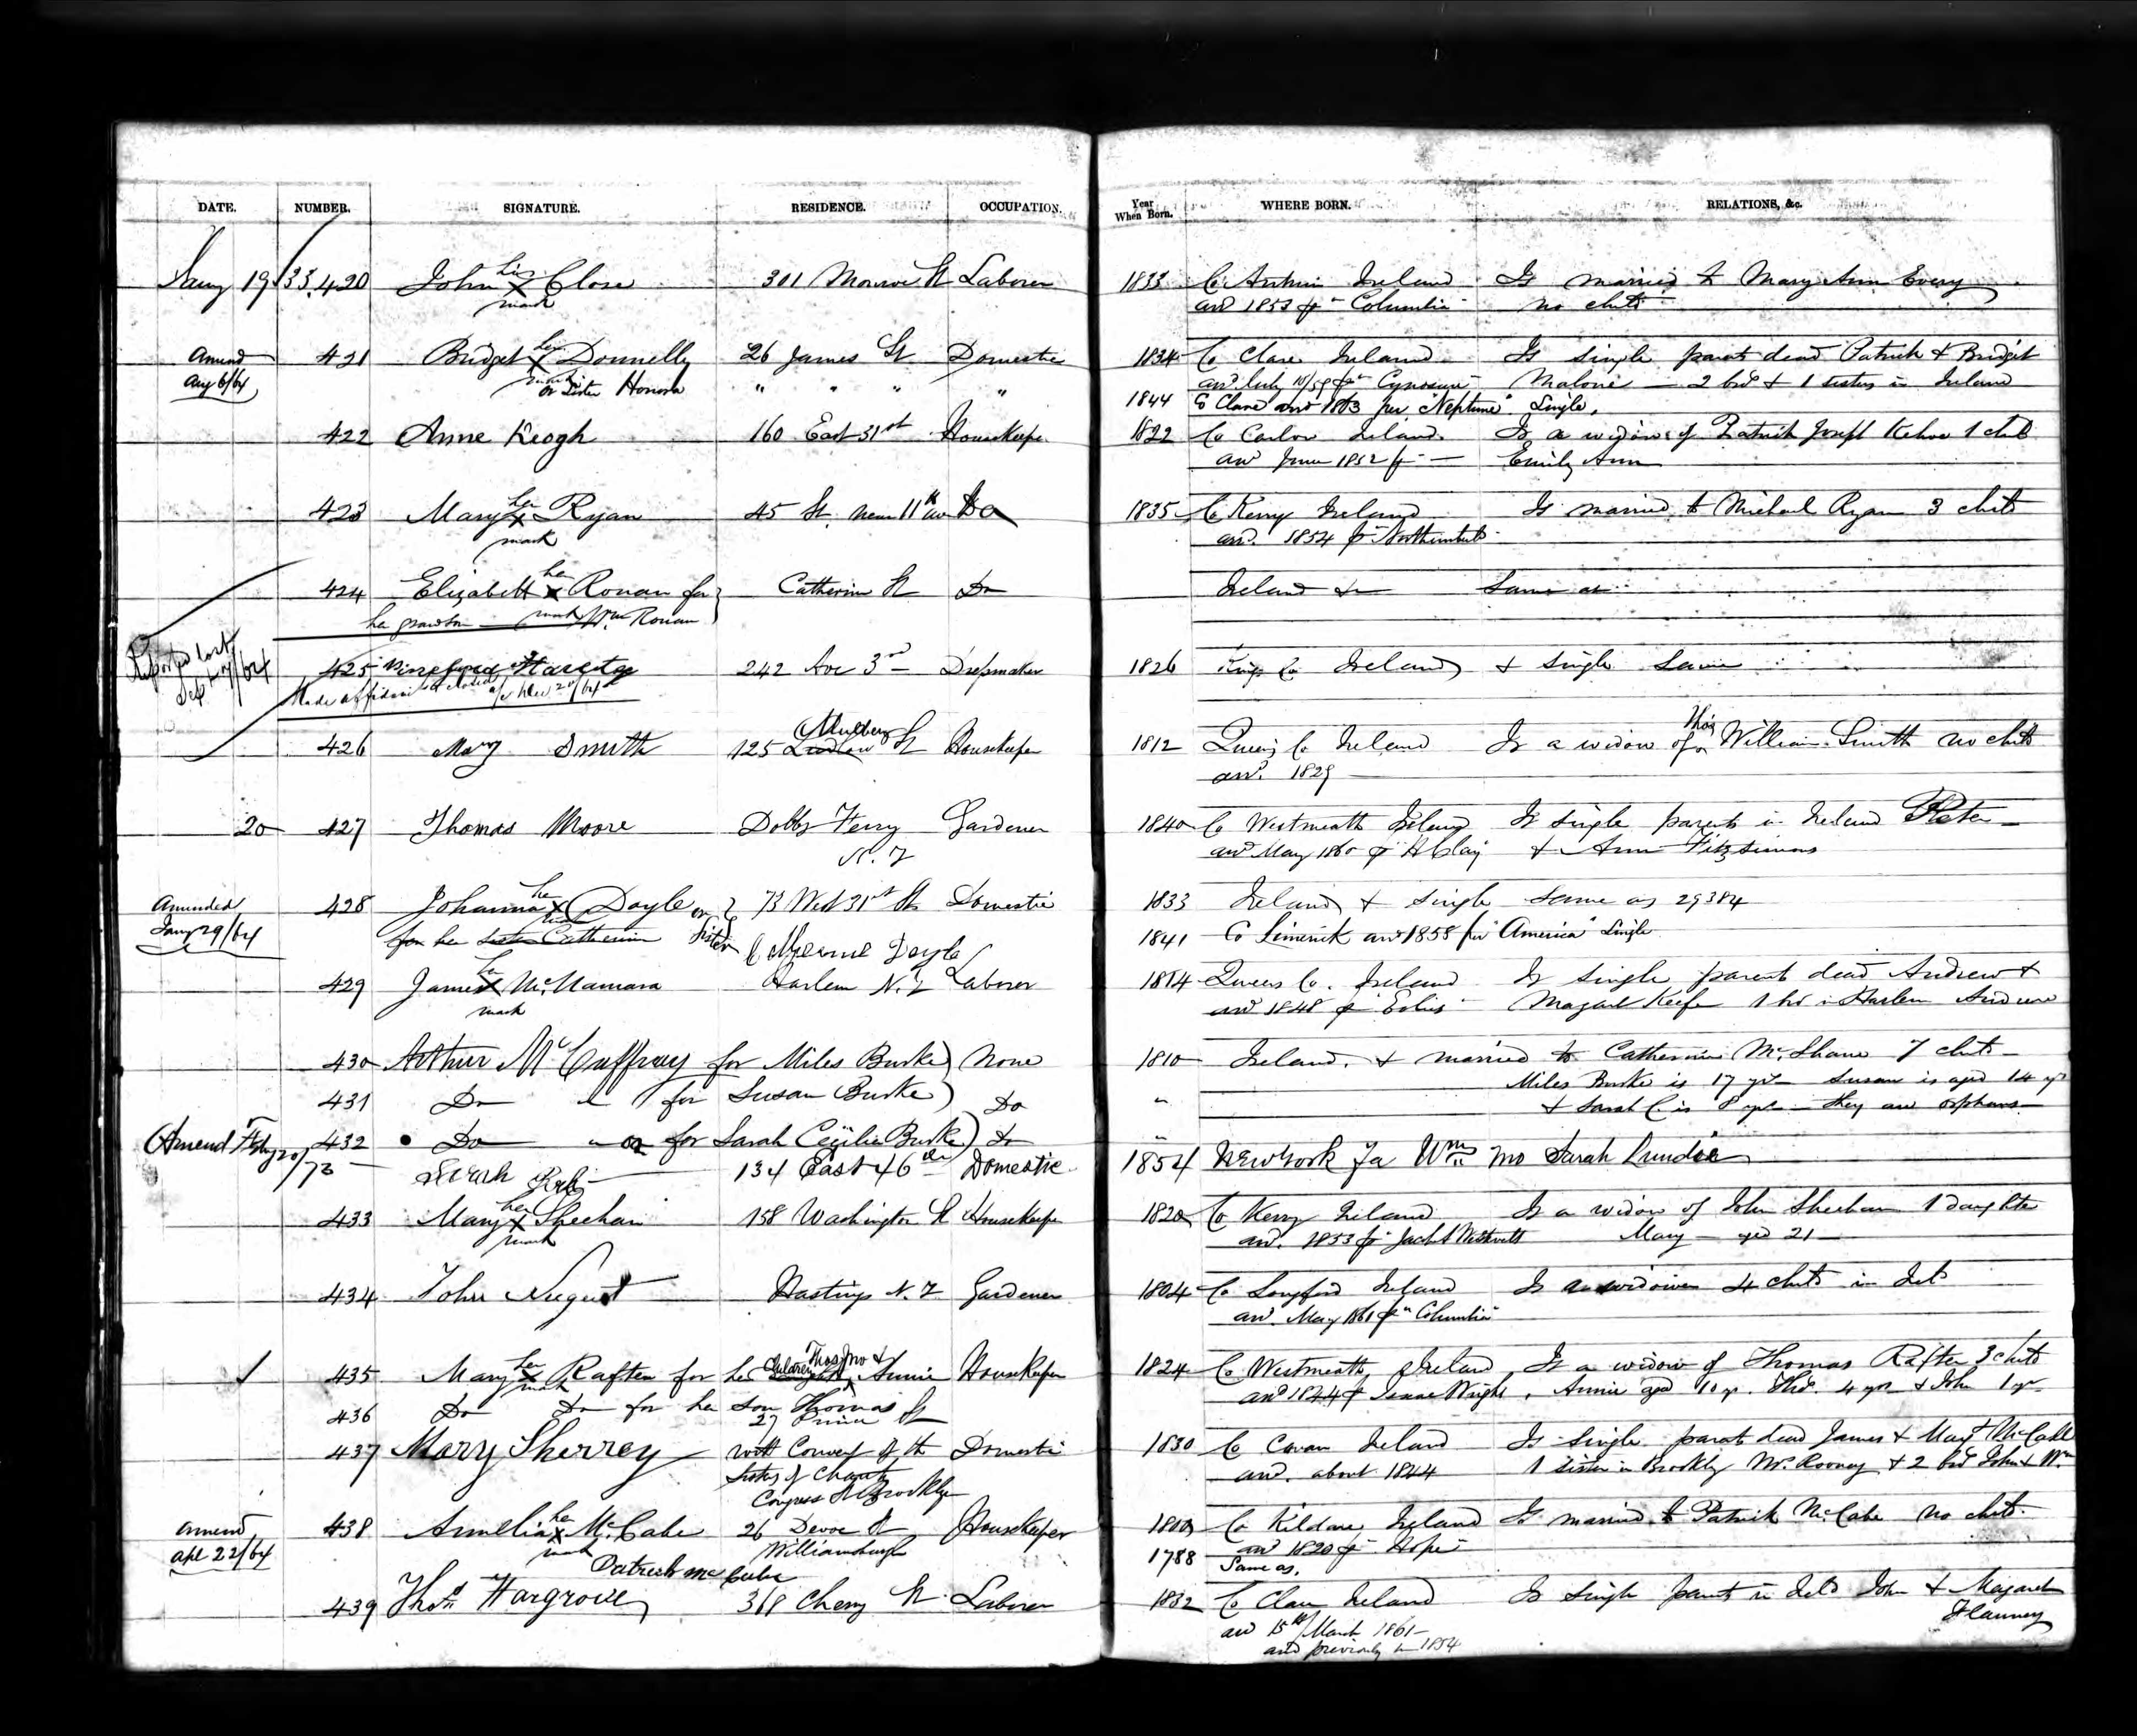 DATE. NUMBER. SIGNATURE. RESIDENCE. OCCUPATION. Year When Born. WHERE BORN. RELATIONS, &c.
Jany 19 33,420 John his x mark Close 301 Monroe St Laborer 1833 Co Antrim Ireland Is married to Mary Ann Every
arrd 1853 pr Columbia no chld
Amend Aug 6/64 421 Bridget her x mark Donnelly 26 James St Domestic 1834 Co Clare Ireland Is single parents dead Patrick & Bridget
arrd July 10/59 pr Cynosure Malone 2 bro & 1 sister in Ireland
or Sister Honora " " " " 1844 Co Clare arrd 1863 per "Neptune" Single.
422 Anne Keogh 160 East 31st Housekeepr 1822 Co Carlow Ireland Is a widow of Patrick Joseph Kehoe 1 chld
arrd June 1852 pr — Emily Ann
423 Mary her x mark Ryan 45 St near 11th av Do 1835 Co Kerry Ireland Is married to Michael Ryan 3 chld
arrd. 1854 pr
424 Elizabeth her x mark Ronan for Catherine St Do Ireland & Same as
her grandson Wm Ronan
Reported lost Sept /64 425 242 Ave 3rd Dressmaker 1826 Kings Co Ireland & single Same
Made affidavit
426 Mary Smith 125 Ludlow Mulberry St Housekeeper 1812 Queens Co Ireland Is a widow of Thos William Smith no chld
arrd. 1829
20 427 Thomas Moore Dobbs Ferry Gardener 1840 Co Westmeath Ireland Is single parents in Ireland Peter
N. Y arrd May 1860 pr H Clay & Ann Fitzsimons
Amended Jany 29/64 428 Johanna her x mark Doyle or 73 West 31st St Domestic 1833 Ireland & single same as 29384
for her sister Catherine sister Doyle 1841 Co Limerick arrd 1858 per "America" Single
429 James his x mark McNamara Harlem N.Y Laborer 1814 Queens Co. Ireland Is single parents dead Andrew &
arrd 1848 pr Margaret Keefe 1 bro in Harlem Andrew
430 Arthur McCaffray for Miles Burke) None 1810 Ireland. & married to Catherine McShane 7 chld
Miles Burke is 17 yrs Susan is aged 14 yrs
431 Do for Susan Burke) Do " & Sarah C. is 8 yrs they are orphans
Amend Feby 20/73 432 Do or for Sarah Cecilie Burke) Do "
Sarah 134 East 46th Domestic 1854 New York Fa Wm Mo Sarah
433 Mary her x mark Sheehan 158 Washington St Housekeeper 1820 Co Kerry Ireland Is a widow of John Sheehan 1 daughter
arrd. 1853 pr Mary aged 21
434 John Nugent Hastings N.Y Gardener 1804 Co Longford Ireland Is a widower 4 chld in Ireld
arrd. May 1861 pr Columbia
1 435 Mary her x mark Raften for her children Thos Jno & Annie Housekeeper 1824 Co Westmeath Ireland Is a widow of Thomas Raften 3 chld
arrd 1844 pr Isaac Wright, Annie aged 10 yr. Thos. 4 yrs & John 1 yr
436 Do Do for her son Thomas
27 Prince St
437 Mary Sherrey with Convent of the Domestic 1830 Co Cavan Ireland Is single parents dead James & Mary McCabe
Sisters of Charity arrd. about 1844 1 sister in Brooklyn Mrs Rooney & 2 bro John & Wm
Congress St Brooklyn
Amend Apl 22/64 438 Amelia her x mark McCabe 26 Devoe St Housekeeper Co Kildare Ireland Is married to Patrick McCabe no chld.
Williamsburgh arrd 1820 pr Hope
Patrick McCabe 1788 Same as.
439 Thos Hargrove 318 Cherry St Laborer 1832 Co Clare Ireland Is single parents in Ireld John & Margaret
arrd 15th March 1861 Flanney
and previously in 1854